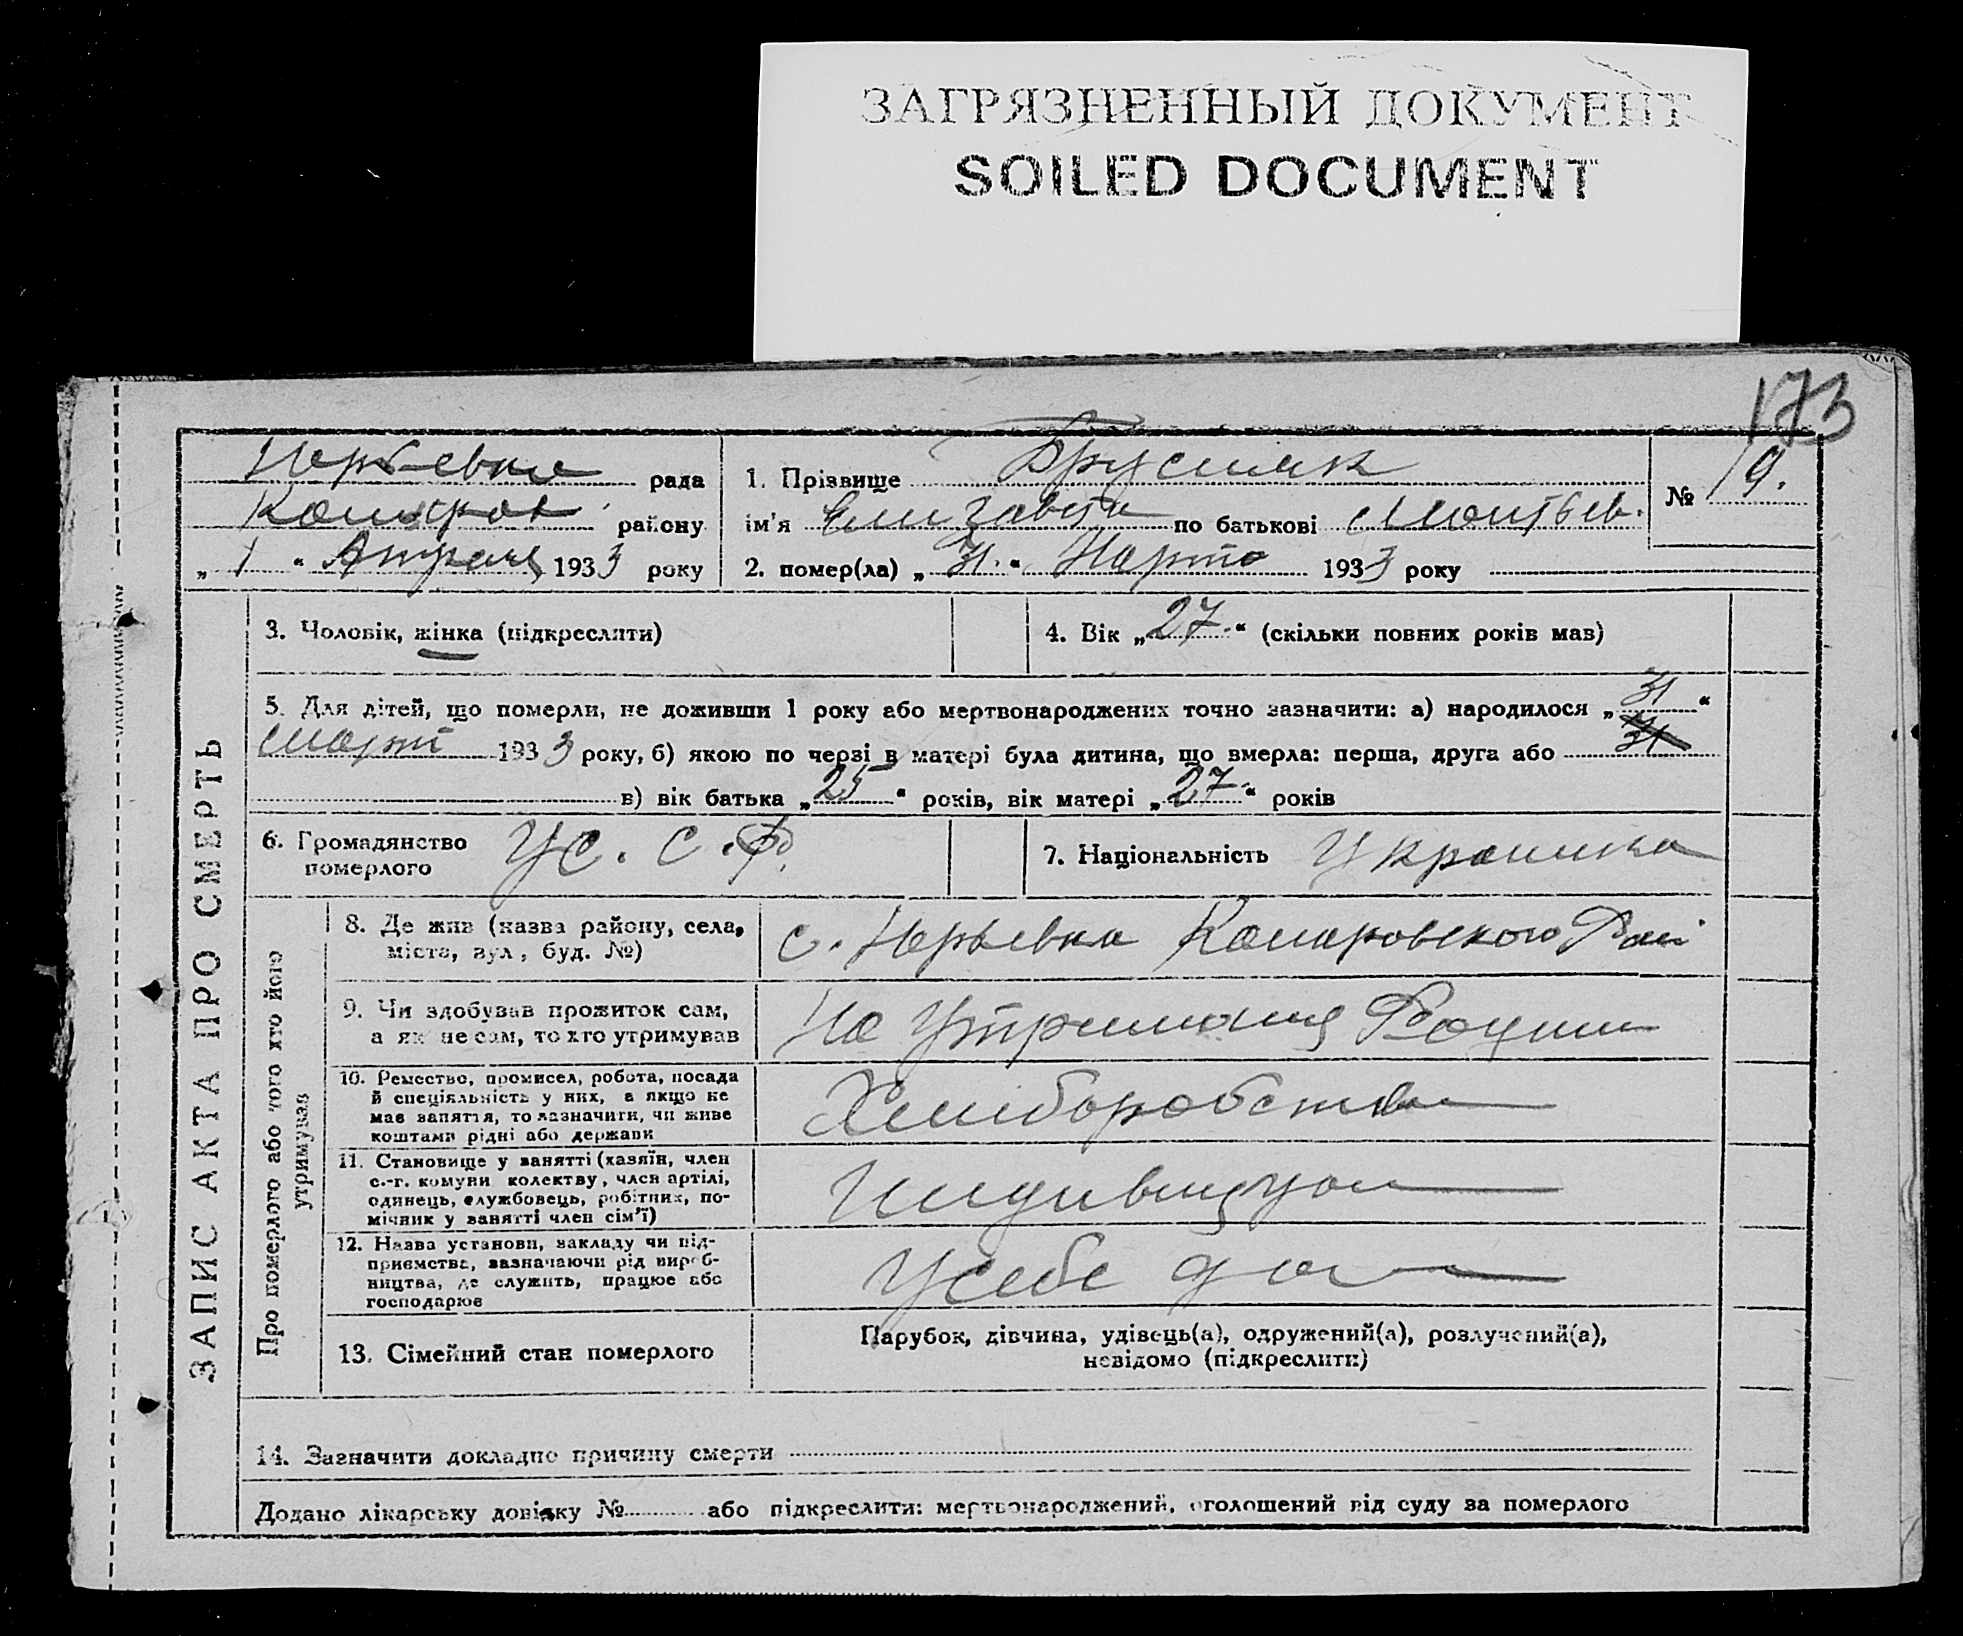 ЗАГРЯЗНЕННЫЙ ДОКУМЕНТ
SOILED DOCUMENT
173
рада
району
„ 1 “ Апреля 1933 року
1. Прізвище
ім'я Елизавета по батькові
2. помер(ла) „ 31. “ Марта 1933 року
№ 19.
ЗАПИС АКТА ПРО СМЕРТЬ
3. Чоловік, жінка (підкреслити)
4. Вік „ 27. “ (скільки повних років мав)
5. Для дітей, що померли, не доживши 1 року або мертвонароджених точно зазначити: а) народилося „ 31 “
март 1933 року, б) якою по черзі в матері була дитина, що вмерла: перша, друга або 31
в) вік батька „ 25 “ років, вік матері „ 27 “ років
6. Громадянство
померлого
УС. С. Р.
7. Національність Украинка
Про померлого або того хто його
утримував
8. Де жив (назва району, села,
міста, вул, буд. №)
с. Юрьевка Комаровского Рай
9. Чи здобував прожиток сам,
а як не сам, то хто утримував
На Утримания Родини
10. Ремество, промисел, робота, посада
й спеціяльність у них, а якщо не
має заняття, то зазначити, чи живе
коштами рідні або держави
Хлиборобства
11. Становище у занятті (хазяїн, член
с.-г. комуни колективу, член артілі,
одинець, службовець, робітник, по-
мічник у занятті член сім'ї)
Индивидуал
12. Назва установи, закладу чи під-
приємства, зазначаючи рід вироб-
ництва, де служить, працює або
господарює
У себе дома
13. Сімейний стан померлого
Парубок, дівчина, удівець(а), одружений(а), розлучений(а),
невідомо (підкреслити)
14. Зазначити докладно причину смерти
Додано лікарську довідку № або підкреслити: мертвонароджений, оголошений від суду за померлого